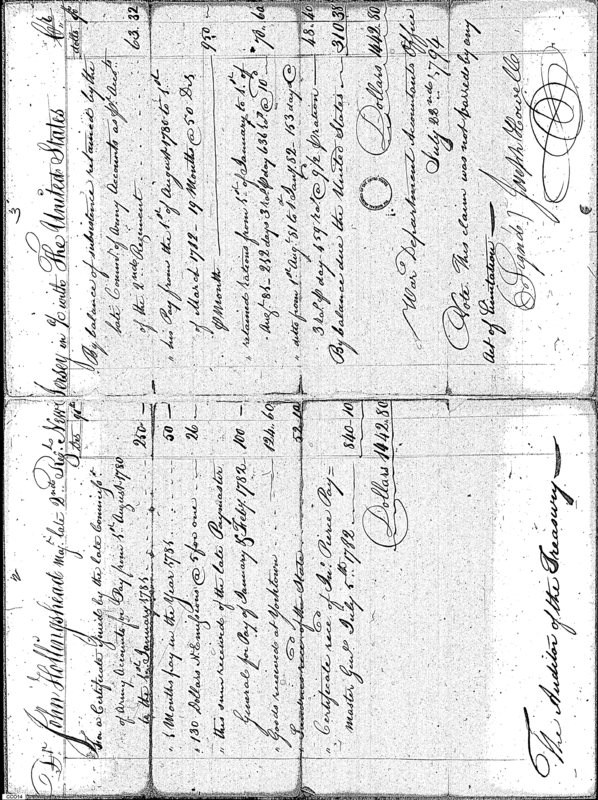 Dr. John Hollingshead Majr. late 2nd Regt. New Jersey in a/c with The United States Cr.
dolls 90ths
For a Certificate issued by the late Commissr.
of Army Accounts for Pay from 1st August 1780
to the 1st January 1781 250 —
" Months pay in the Year 1781 50 —
" 130 Dollars N Emissions @ 5 for one 26 —
" this sum received of the late Paymaster
General for Pay of January & Feby. 1782 100 —
" Goods received at Yorktown 124.60
of the State 52.10
" Certificate recd. of Jno. Pierce Pay=
master Genl. July 5th 1782 840.10
Dollars 1442.80
The Auditor of the Treasury —
dolls 90ths
By balance of subsistence retained by the
late Commr. of Army Accounts as pr. Acct.
of the 2nd Regiment 63.32
" his Pay from the 1st of August 1780 to 1st
of March 1782 - 19 Months @ 50 Drs.
pr Month 950
" retained rations from 1st of January to 1st of
Augt. 81 - 212 days 3 rats. pr day 636 rats. @ 10 70.60
" ditto from 1st Augt. 81 to 1 Jany. 82 - 153 days @
3 rats. pr day 459 rats. @ 9/2 pr ration 48.40
By balance due the United States 310.38
Dollars 1442.80
War Department Accountants Office
July 22nd 1794
Note This claim was not barred by any
Act of Limitation —
Signed Joseph Howell